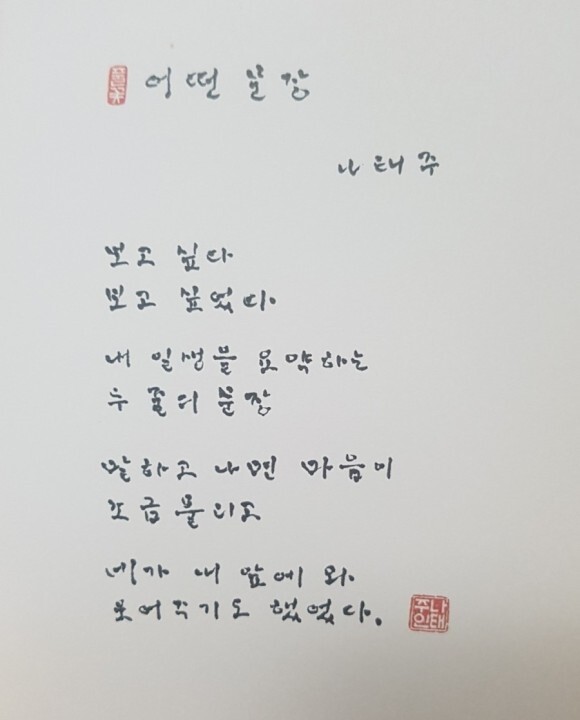 어떤 문장
나태주
보고 싶다
보고 싶었다.
내 일생을 요약하는
두 줄의 문장
말하고 나면 마음이
조금 풀리고
네가 내 앞에 와
웃어주기도 했었다.
나태주인